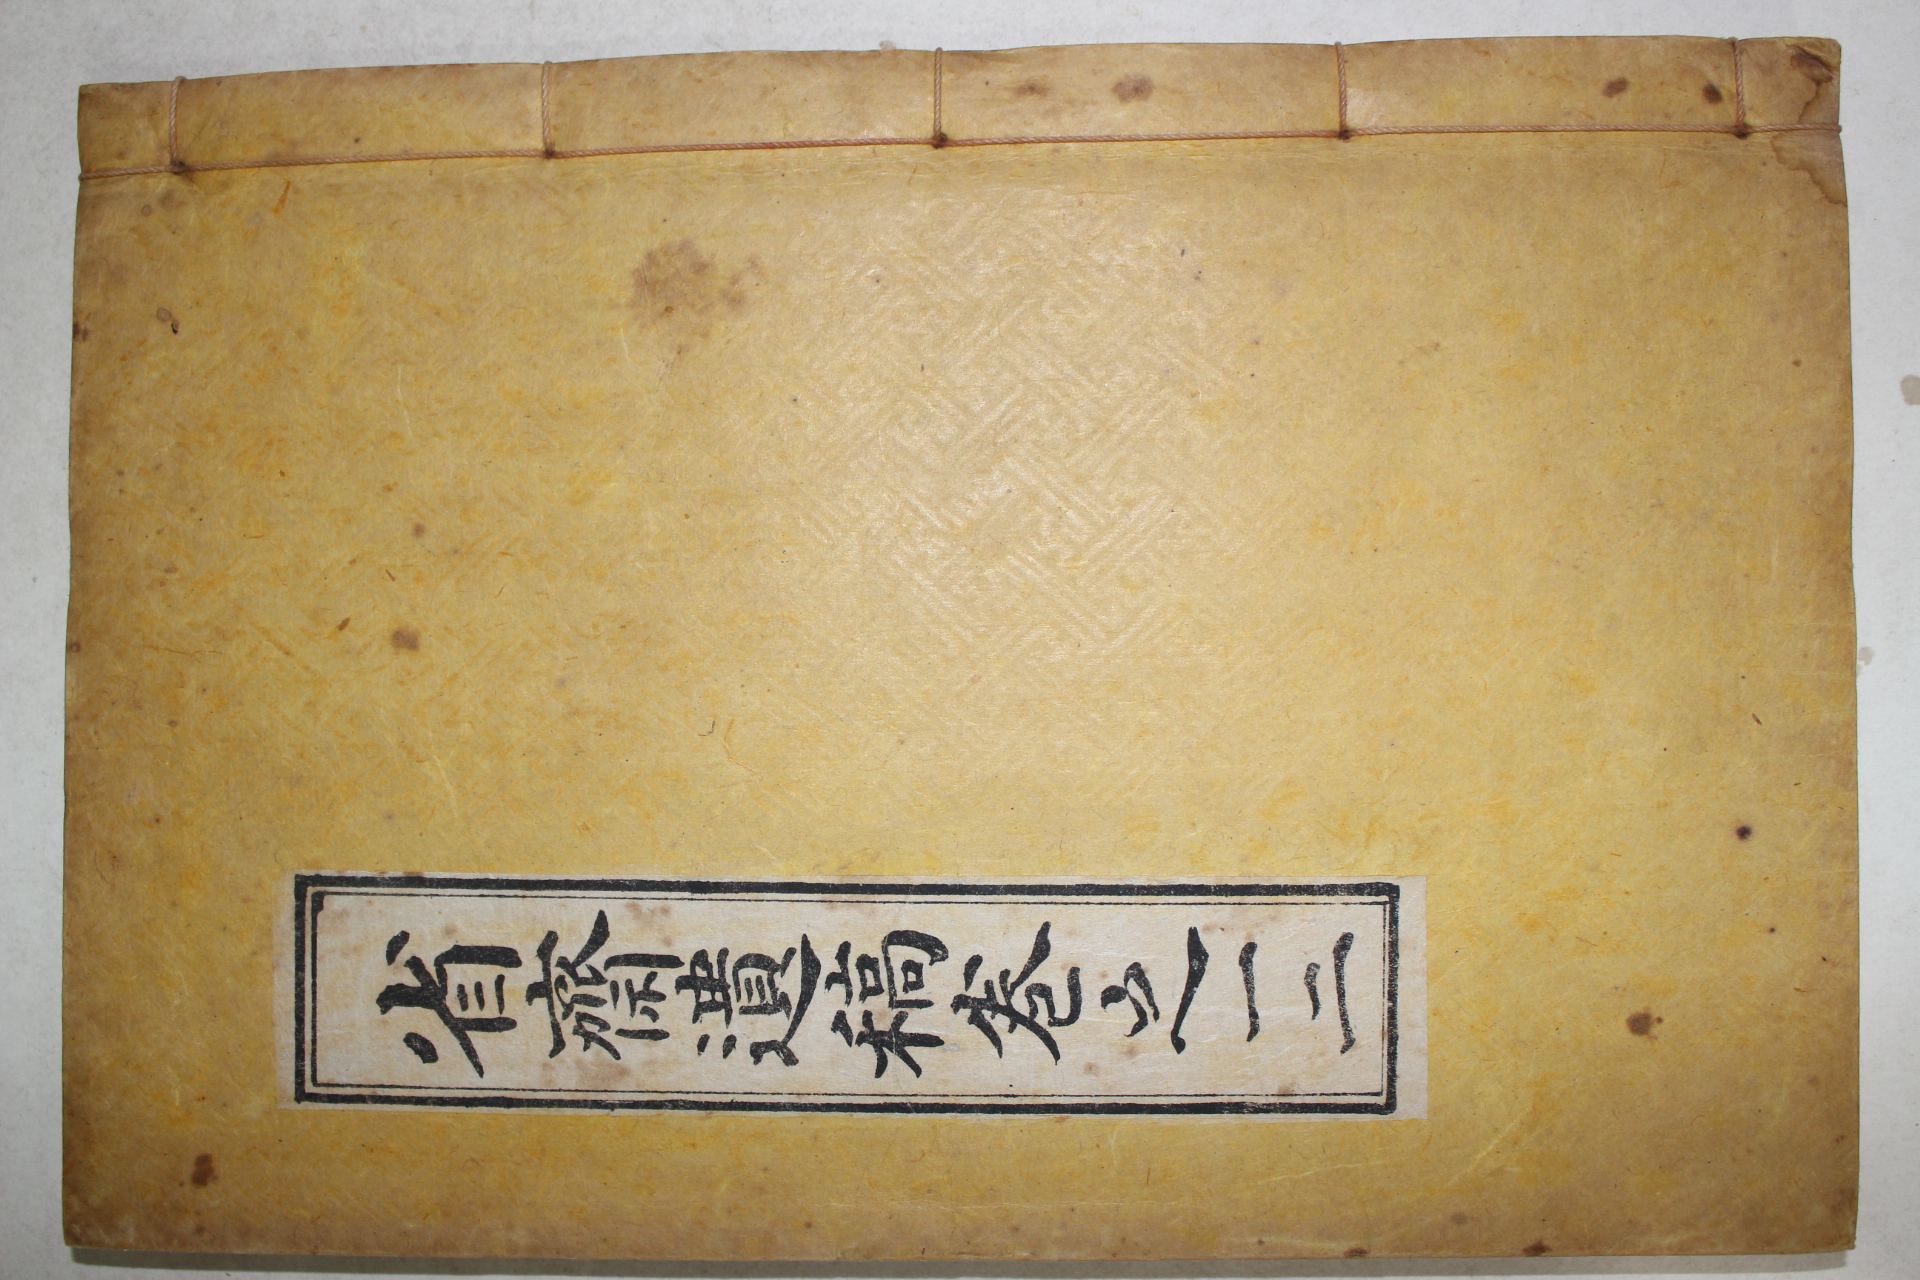 省齋遺稿卷之一二